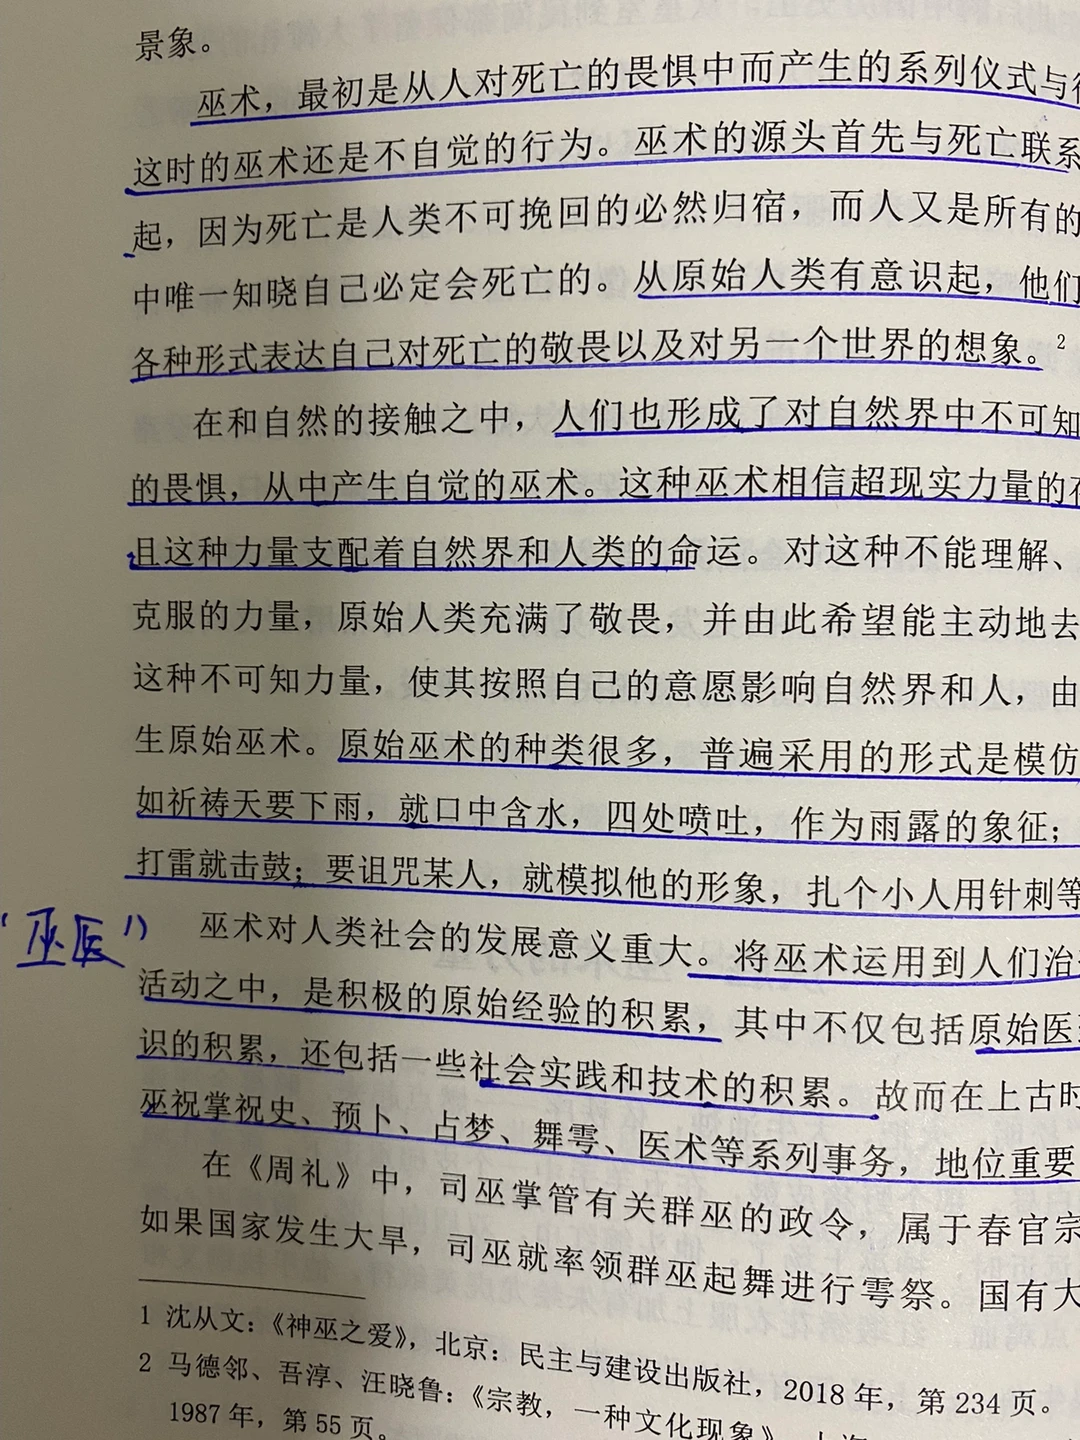 景象。
巫术，最初是从人对死亡的畏惧中而产生的系列仪式与
这时的巫术还是不自觉的行为。巫术的源头首先与死亡联系
起，因为死亡是人类不可挽回的必然归宿，而人又是所有的
中唯一知晓自己必定会死亡的。从原始人类有意识起，他们
各种形式表达自己对死亡的敬畏以及对另一个世界的想象。2
在和自然的接触之中，人们也形成了对自然界中不可知
的畏惧，从中产生自觉的巫术。这种巫术相信超现实力量的
且这种力量支配着自然界和人类的命运。对这种不能理解、
克服的力量，原始人类充满了敬畏，并由此希望能主动地去
这种不可知力量，使其按照自己的意愿影响自然界和人，由
生原始巫术。原始巫术的种类很多，普遍采用的形式是模仿
如祈祷天要下雨，就口中含水，四处喷吐，作为雨露的象征；
打雷就击鼓；要诅咒某人，就模拟他的形象，扎个小人用针刺等
“巫医”
巫术对人类社会的发展意义重大。将巫术运用到人们治
活动之中，是积极的原始经验的积累，其中不仅包括原始医
识的积累，还包括一些社会实践和技术的积累。故而在上古时
巫祝掌祝史、预卜、占梦、舞雩、医术等系列事务，地位重要
在《周礼》中，司巫掌管有关群巫的政令，属于春官宗
如果国家发生大旱，司巫就率领群巫起舞进行雩祭。国有大
1 沈从文：《神巫之爱》，北京：民主与建设出版社，2018年，第234页。
2 马德邻、吾淳、汪晓鲁：《宗教，一种文化现象》，上海
1987年，第55页。